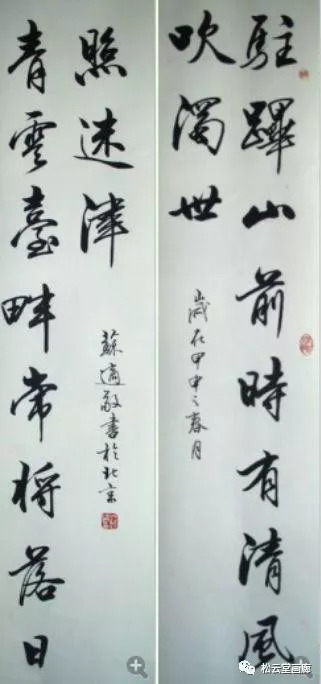 駐蹕山前時有清風
吹濁世
歲在甲申之春月
青雲臺畔常將落日
照迷津
蘇適敬書於北京
松云堂画廊